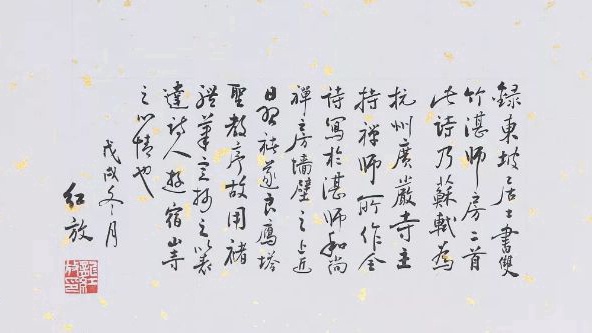 錄東坡居士書雙
竹湛師房二首
此詩乃蘇軾為
杭州廣嚴寺主
持禪師所作全
詩寫於湛師和尚
禪房墻壁之上近
日習褚遂良鴈塔
聖教序故用褚
體筆意抄之以表
達詩人遊宿山寺
之心情也
戊戌冬月
红放